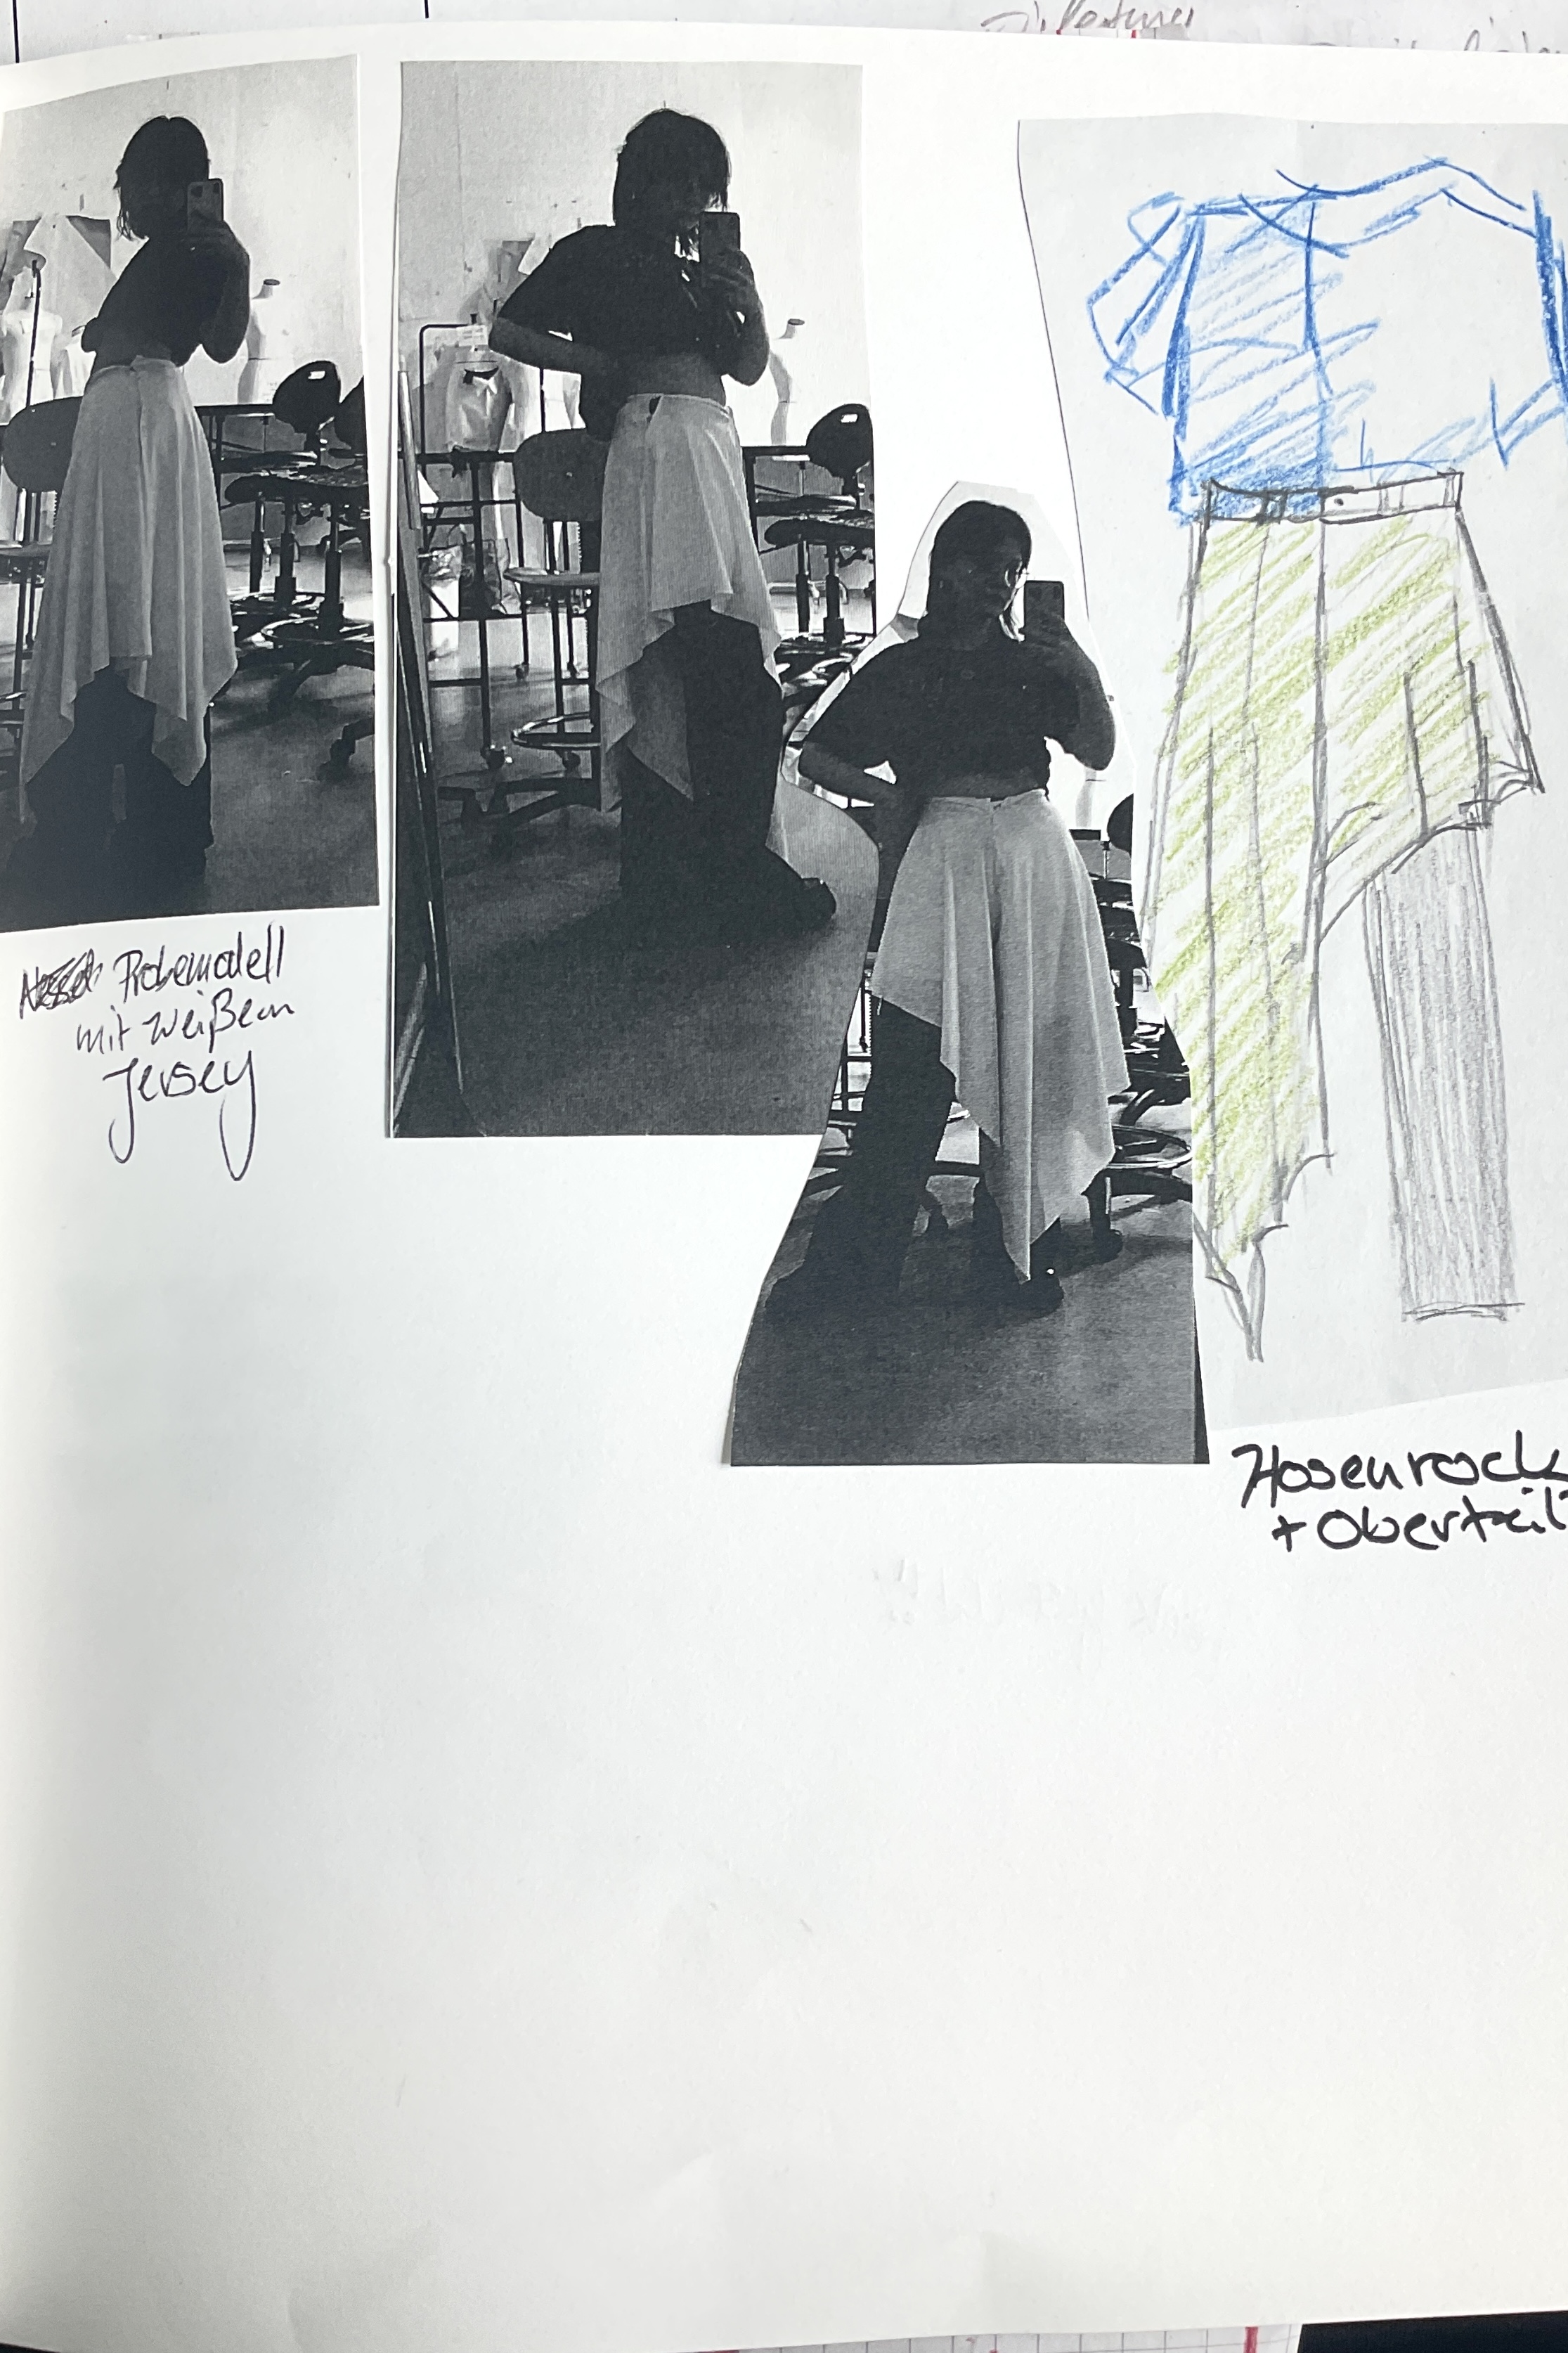 Probemodell
mit weißem
Jersey
Hosenrock
+ Oberteil